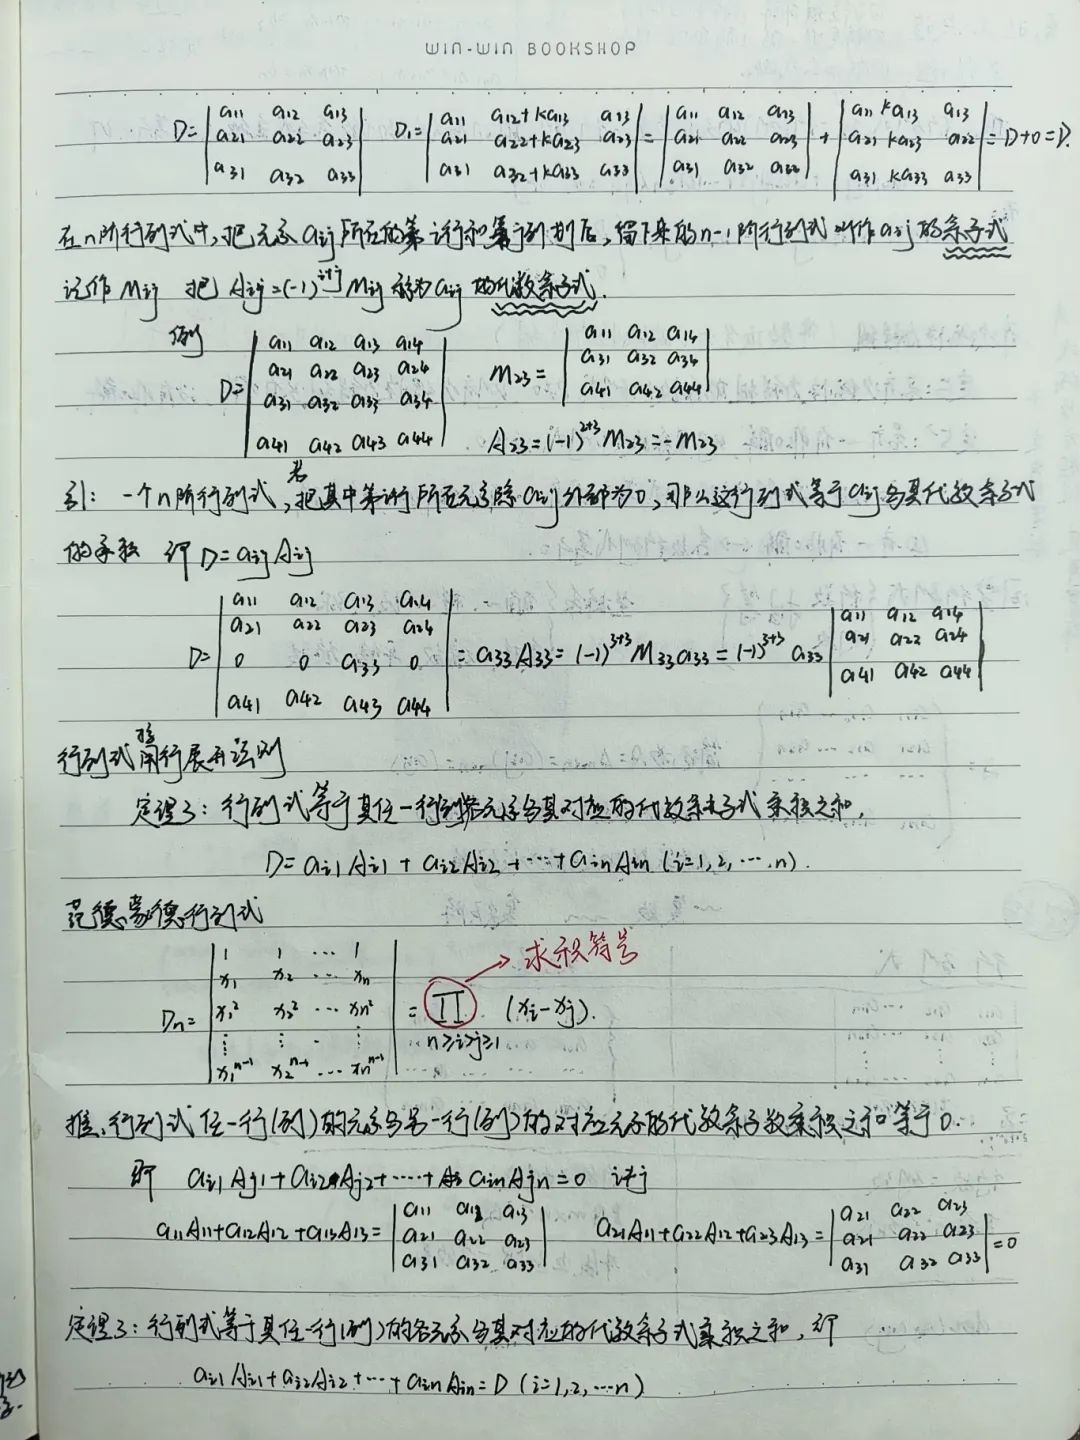 WIN-WIN BOOKSHOP
D= |a11 a12 a13; a21 a22 a23; a31 a32 a33| D1= |a11 a12+ka13 a13; a21 a22+ka23 a23; a31 a32+ka33 a33| = |a11 a12 a13; a21 a22 a23; a31 a32 a33| + |a11 ka13 a13; a21 ka23 a23; a31 ka33 a33| = D+0=D.
在n阶行列式中,把元素aij所在的第i行和第j列划后,留下来的n-1阶行列式叫作aij的余子式
记作Mij 把Aij=(-1)^{i+j}Mij称为aij的代数余子式.
例 D= |a11 a12 a13 a14; a21 a22 a23 a24; a31 a32 a33 a34; a41 a42 a43 a44| M23= |a11 a12 a14; a31 a32 a34; a41 a42 a44|
A23=(-1)^{2+3}M23=-M23
引: 一个n阶行列式,若把其中第i行所在元素除aij外都为0,那么这行列式等于aij与其代数余子式
的乘积 即D=aijAij
D= |a11 a12 a13 a14; a21 a22 a23 a24; 0 0 a33 0; a41 a42 a43 a44| = a33A33=(-1)^{3+3}M33a33=(-1)^{3+3}a33 |a11 a12 a14; a21 a22 a24; a41 a42 a44|
行列式按行展开法则
定理3: 行列式等于其任一行列各元素与其对应的代数余子式乘积之和,
D=ai1Ai1+ai2Ai2+…+ainAin (i=1,2,…,n).
范德蒙德行列式
求积符号
Dn= |1 1 … 1; x1 x2 … xn; x1² x2² … xn²; ⋮ ⋮ ⋮; x1^{n-1} x2^{n-1} … xn^{n-1}| = ∏ (xi-xj).
n≥i>j≥1
推.行列式任一行(列)的元素与另一行(列)的对应元素的代数余子数乘积之和等于0.
即 ai1Aj1+ai2Aj2+……+ainAjn=0 i≠j
a11A11+a12A12+a13A13= |a11 a12 a13; a21 a22 a23; a31 a32 a33| a21A11+a22A12+a23A13= |a21 a22 a23; a21 a22 a23; a31 a32 a33| =0
定理3: 行列式等于其任一行(列)的各元素与其对应的代数余子式乘积之和, 即
ai1Ai1+ai2Ai2+…+ainAin=D (i=1,2,…n)